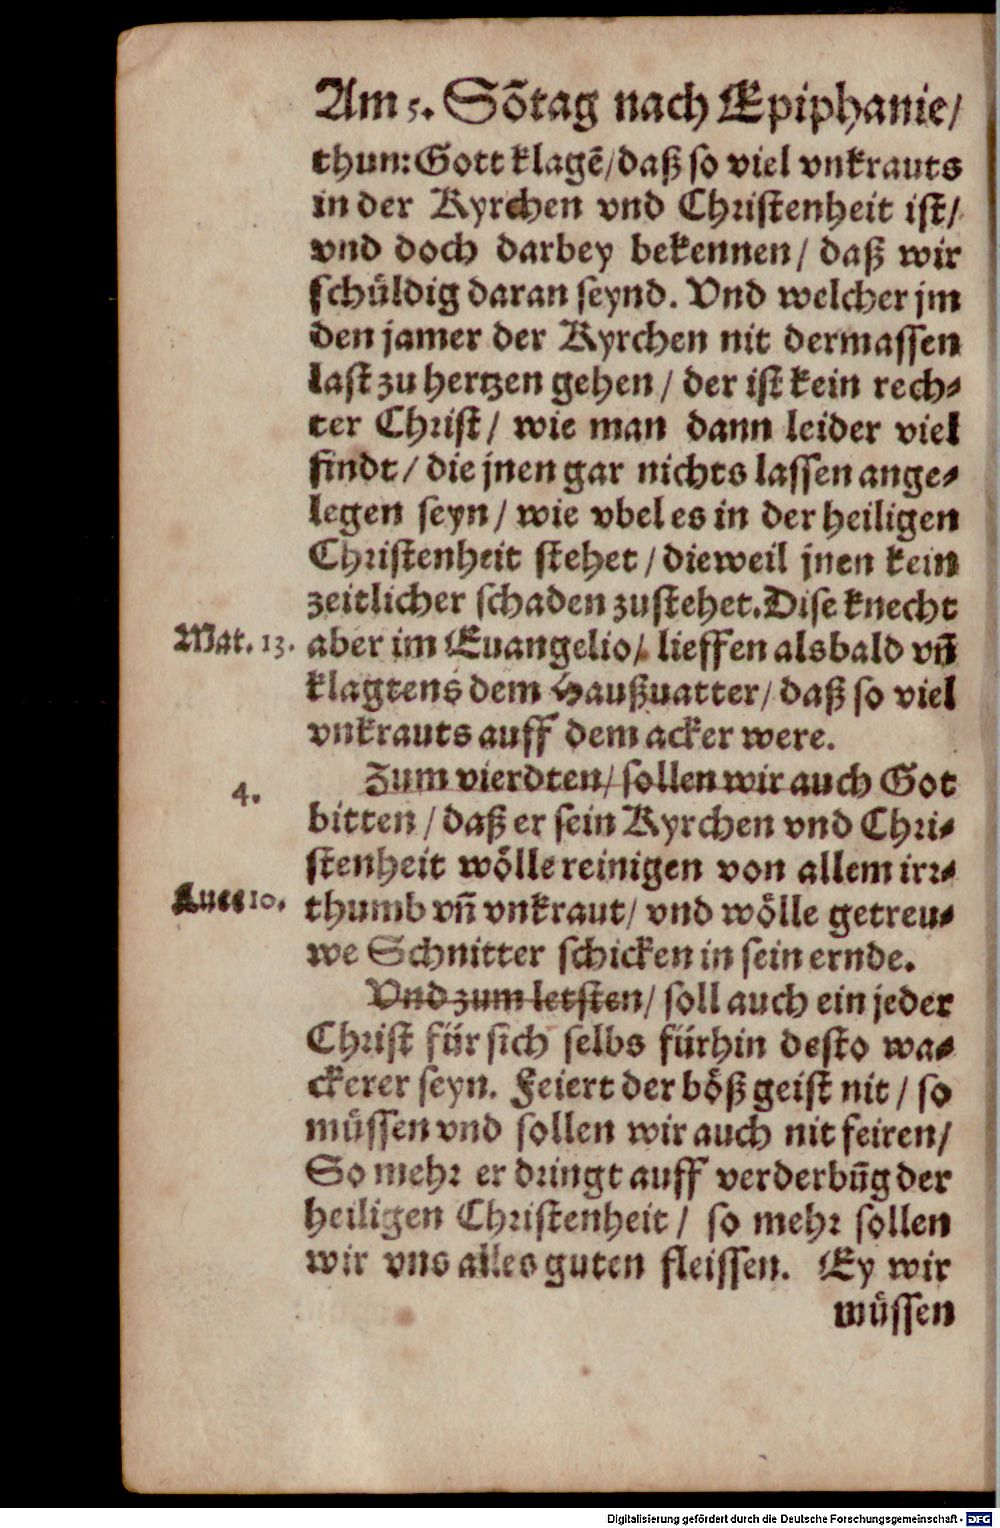 Am 5. Sõtag nach Epiphanie/
thun: Gott klagẽ/ daß so viel vnkrauts
in der Kyrchen vnd Christenheit ist/
vnd doch darbey bekennen/ daß wir
schůldig daran seynd. Vnd welcher jm
den jamer der Kyrchen nit dermassen
last zu hertzen gehen/ der ist kein rech-
ter Christ/ wie man dann leider viel
findt/ die jnen gar nichts lassen ange-
legen seyn/ wie vbel es in der heiligen
Christenheit stehet/ dieweil jnen kein
zeitlicher schaden zustehet. Dise knecht
Mat. 13. aber im Euangelio/ lieffen alsbald vñ
klagtens dem Haußuatter/ daß so viel
vnkrauts auff dem acker were.
4. Zum vierdten/ sollen wir auch Got
bitten/ daß er sein Kyrchen vnd Chri-
stenheit wölle reinigen von allem irr-
Luce 10. thumb vñ vnkraut/ vnd wölle getreu-
we Schnitter schicken in sein ernde.
Vnd zum letsten/ soll auch ein jeder
Christ für sich selbs fürhin desto wa-
ckerer seyn. Feiert der böß geist nit/ so
müssen vnd sollen wir auch nit feiren/
So mehr er dringt auff verderbũg der
heiligen Christenheit/ so mehr sollen
wir vns alles guten fleissen. Ey wir
müssen
Digitalisierung gefördert durch die Deutsche Forschungsgemeinschaft - DFG